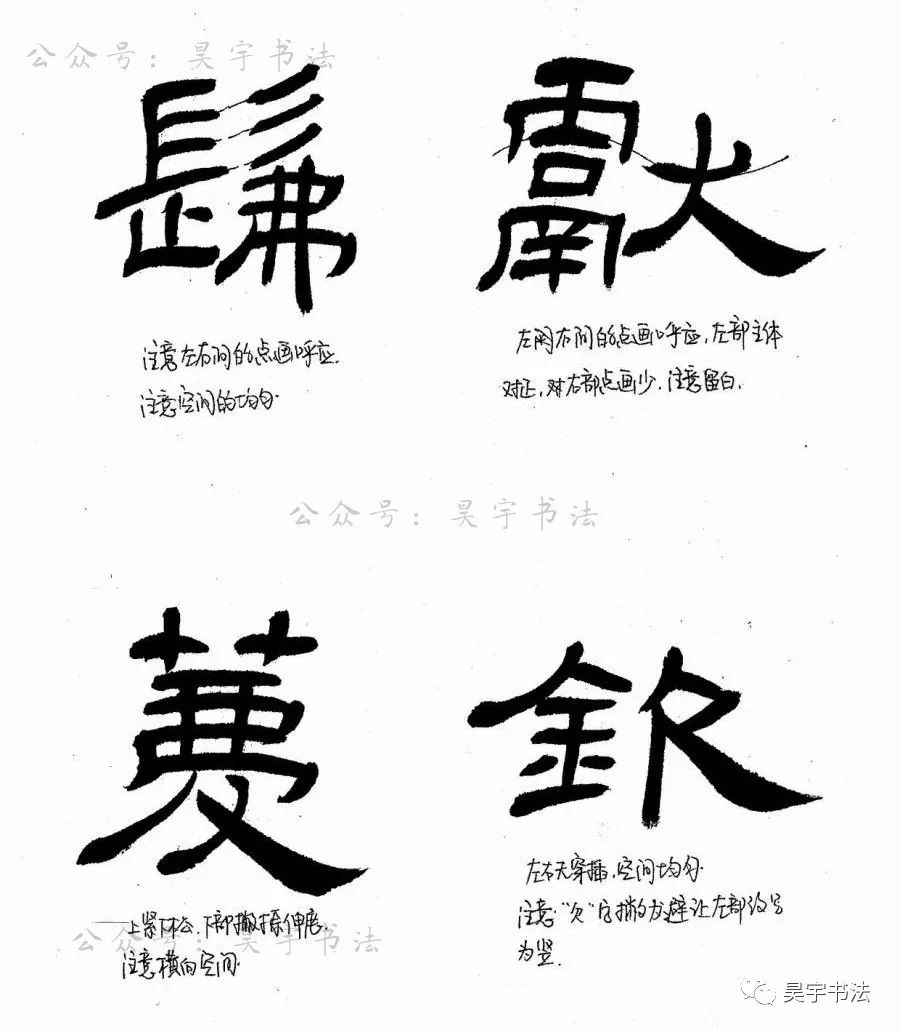 公众号：昊宇书法
髴 獻
注意左右间的点画呼应.
注意空间的均匀.
左两右间的点画呼应,左部主体
对正,对右部点画少.注意留白.
公众号：昊宇书法
蔓 欽
上紧下松.下部撇捺伸展.
注意横向空间.
公众号：昊宇书法
左右穿插.空间均匀.
注意"欠"字撇的方避让左部
为竖.
昊宇书法